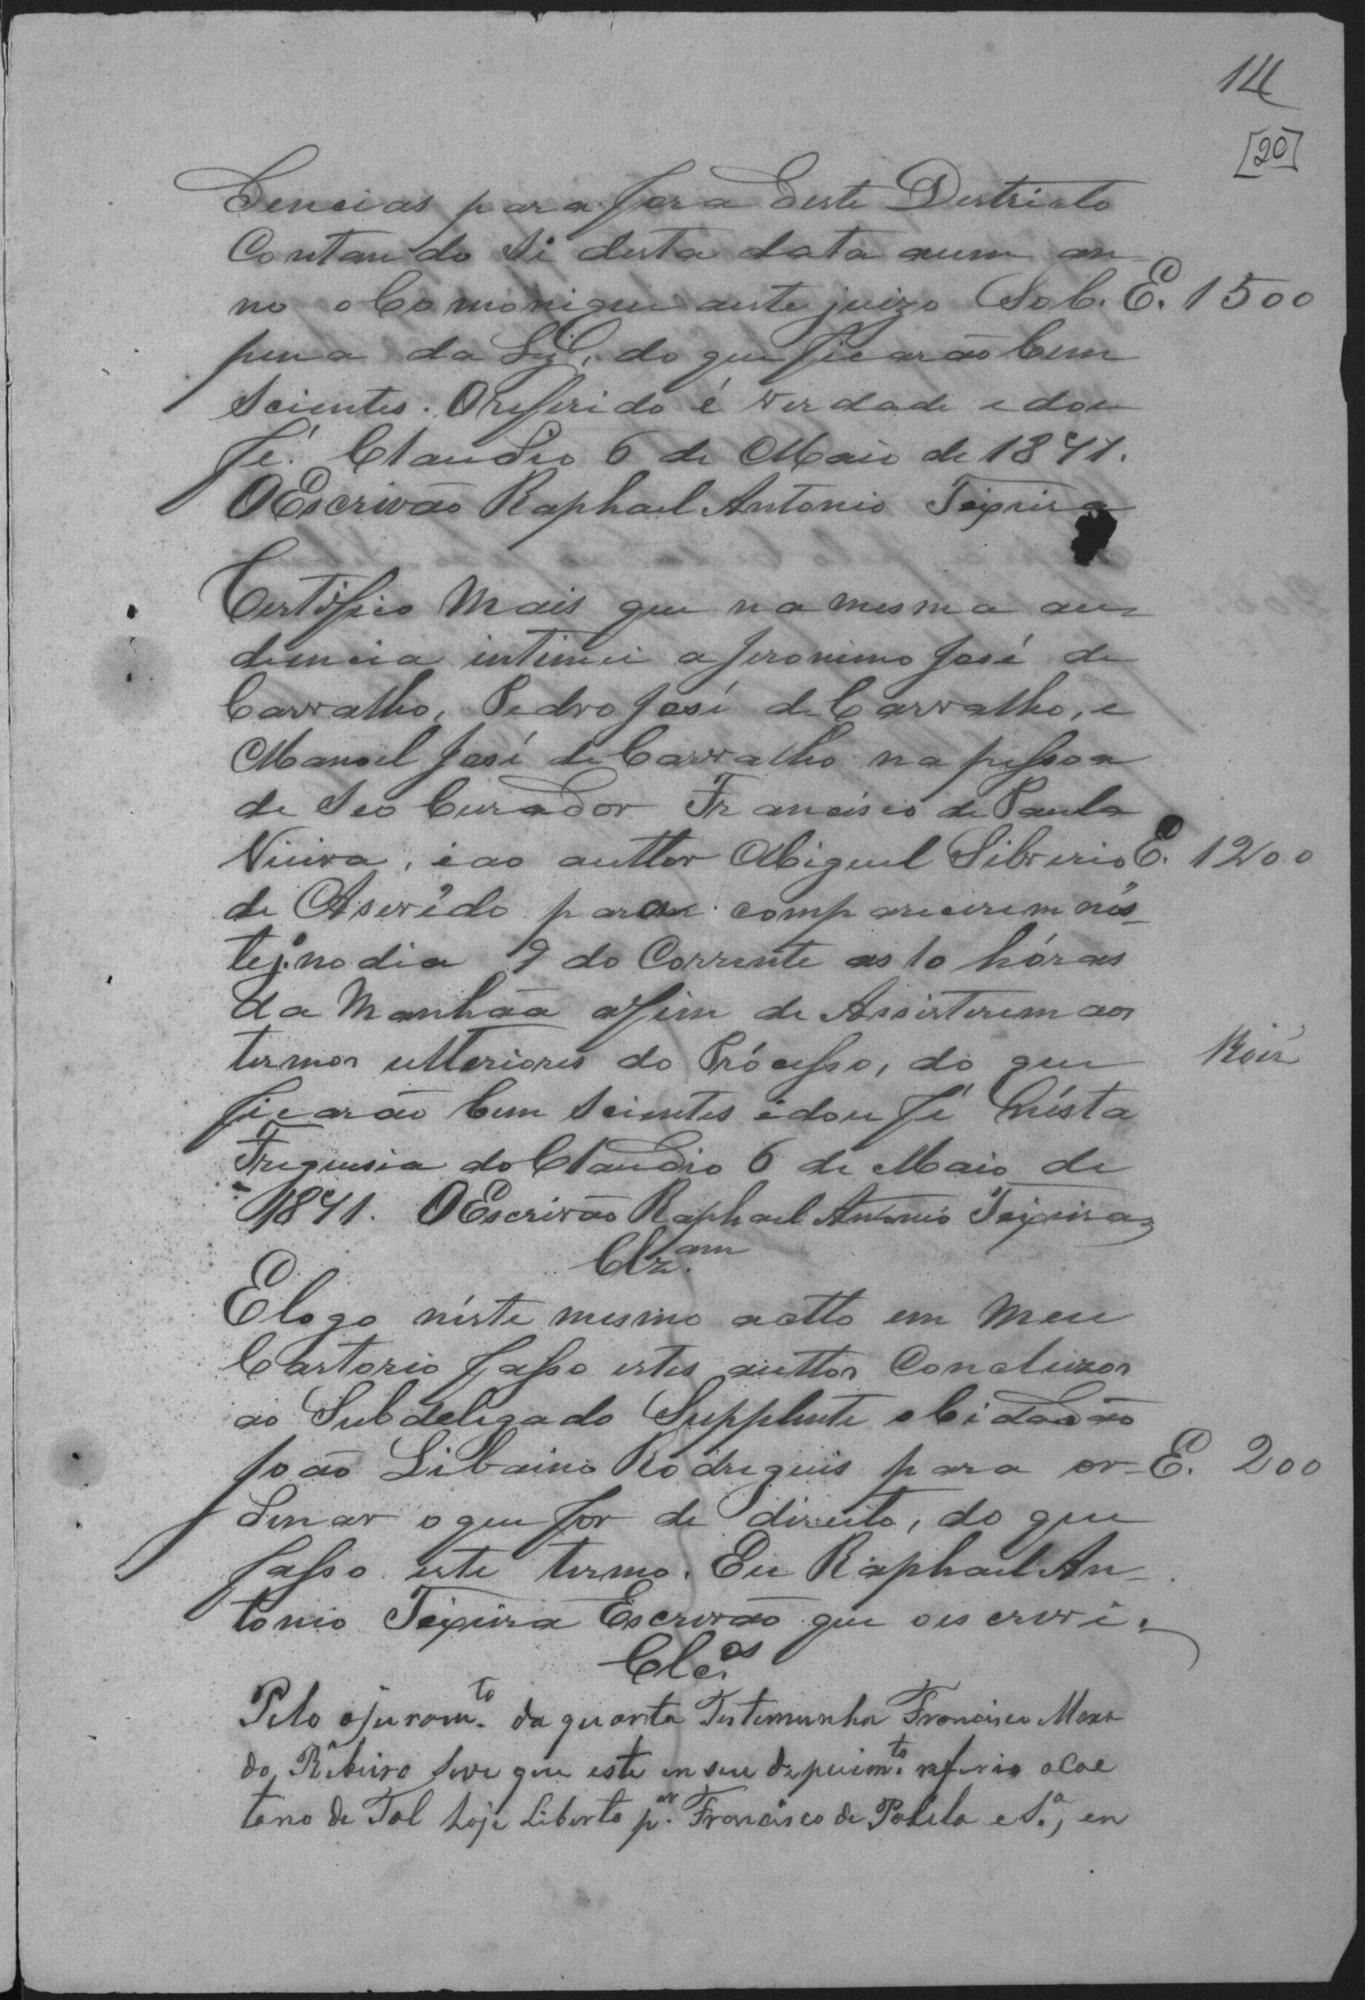 14
[20]
dencias para fora deste Destricto
Contando Si desta data aum an
no o Comonique aeste juizo Sob. E. 1500
pena da Ley, do que ficarão bem
Scientes. O referido é verdade e dou
fé. Claudio 6 de Maio de 1871.
O Escrivão Raphael Antonio Teixeira
Certifico Mais que na mesma au
diencia intimei a Jeronimo José de
Carvalho, Pedro José de Carvalho, e
Manoel José de Carvalho na pessoa
de Seo Curador Francisco de Paula
Vieira, e ao auttor Miguel Silverio E. 1200
de Aserêdo para comparecerem nés-
te j. no dia 9 do Corrente as 10 hóras
da Manhãa afim de Assisterem aos
termos ulteriores do Prócesso, do que
ficarão bem Scientes e dou fé Nésta
Freguesia do Claudio 6 de Maio de
1871. O Escrivão Raphael Antonio Teixeira
Clz.am
E logo néste mesmo actto em Meu
Cartorio fasso estes auttos Concluzos
ao Subdelegado Supplente o Cidadão
João Libaino Rodrigues para or- E. 200
denar o que for de direito, do que
fasso este termo. Eu Raphael An-
tonio Teixeira Escrivão que o escrevi.
Clc.os
Pelo o juram.to da quarta Testemunha Francisco Maxa
do Ribeiro leve que este em seu depuim.to referio a Cae
tano de Tal hoje liberto p.r Francisco de Paula e S.a, en